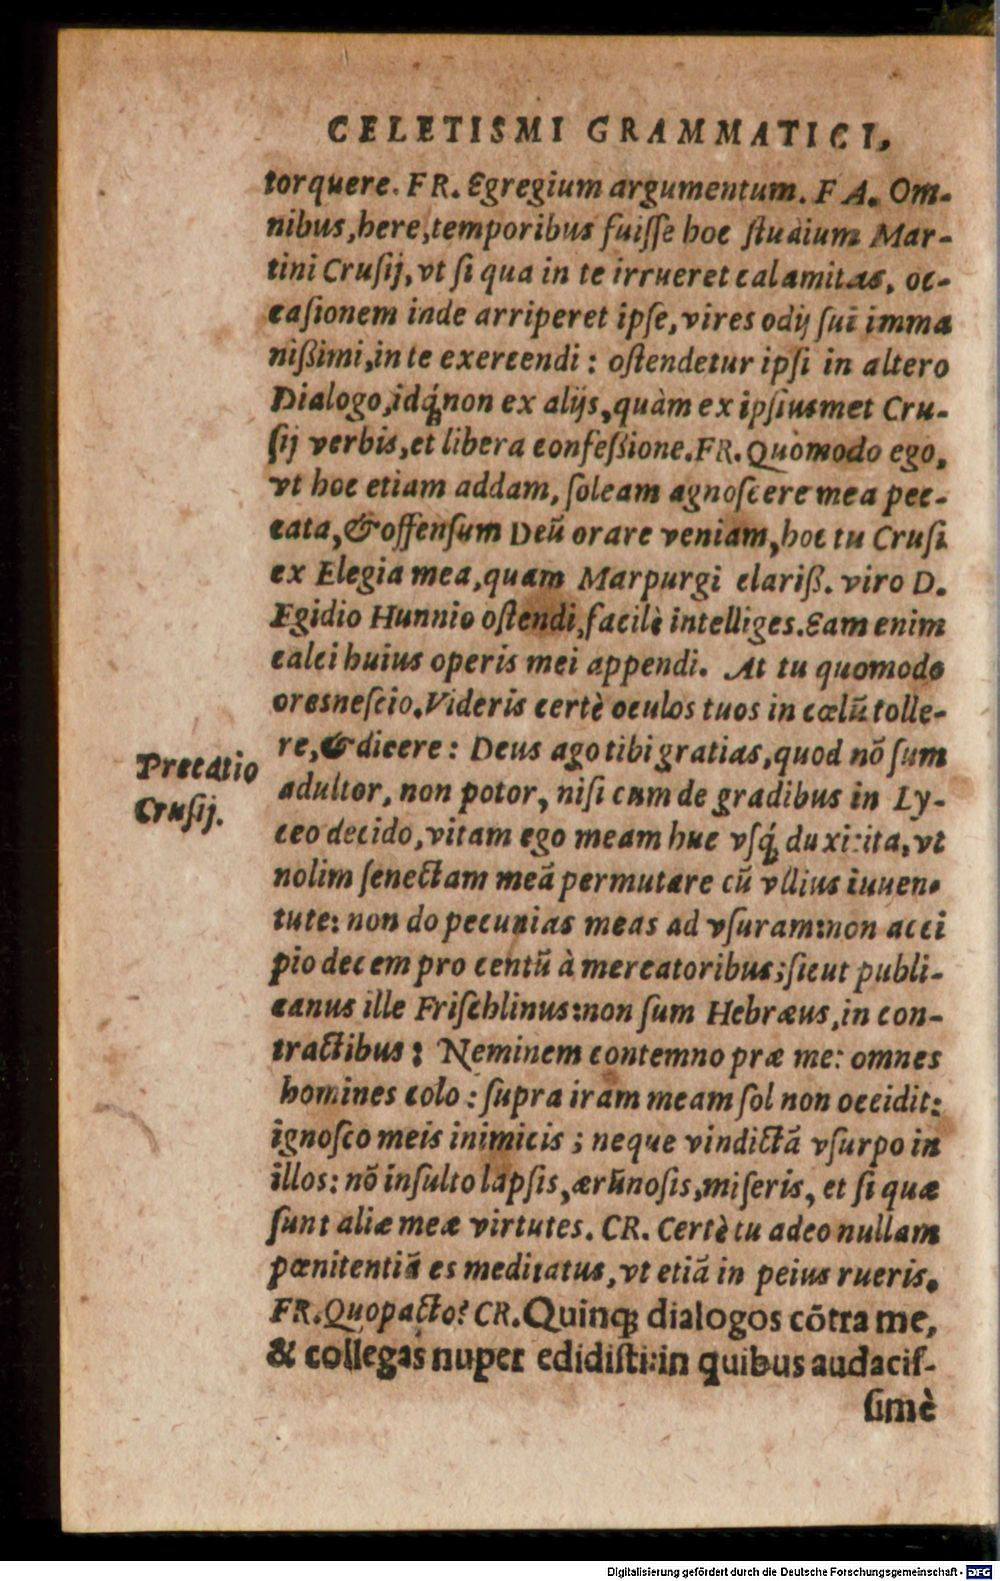 CELETISMI GRAMMATICI,
torquere. FR. Egregium argumentum. FA. Om-
nibus, here, temporibus fuiſſe hoc ſtudium Mar-
tini Cruſij, vt ſi qua in te irrueret calamitas, oc-
caſionem inde arriperet ipſe, vires odij ſui imma
nißimi, in te exercendi: oſtendetur ipſi in altero
Dialogo, idq́; non ex alijs, quàm ex ipſiusmet Cru-
ſij verbis, et libera confeßione. FR. Quomodo ego,
vt hoc etiam addam, ſoleam agnoſcere mea pec-
cata, & offenſum Deũ orare veniam, hoc tu Cruſi
ex Elegia mea, quam Marpurgi clariß. viro D.
Egidio Hunnio oſtendi, facilè intelliges. Eam enim
calci huius operis mei appendi. At tu quomodo
ores neſcio. Videris certè oculos tuos in cœlũ tolle-
re, & dicere: Deus ago tibi gratias, quod nõ ſum
Precatio
Cruſij.
adulter, non potor, niſi cum de gradibus in Ly-
ceo decido, vitam ego meam huc vſq́; duxi: ita, vt
nolim ſenectam meã permutare cũ vllius iuuen-
tute: non do pecunias meas ad vſuram: non acci
pio decem pro centũ à mercatoribus; ſicut publi-
canus ille Friſchlinus: non ſum Hebræus, in con-
tractibus: Neminem contemno præ me: omnes
homines colo: ſupra iram meam ſol non occidit:
ignoſco meis inimicis; neque vindictã vſurpo in
illos: nõ inſulto lapſis, ærũnoſis, miſeris, et ſi quæ
ſunt aliæ meæ virtutes. CR. Certè tu adeo nullam
pœnitentiã es meditatus, vt etiã in peius rueris.
FR. Quo pacto? CR. Quinq; dialogos cõtra me,
& collegas nuper edidiſti: in quibus audaciſ-
ſimè
Digitalisierung gefördert durch die Deutsche Forschungsgemeinschaft - DFG